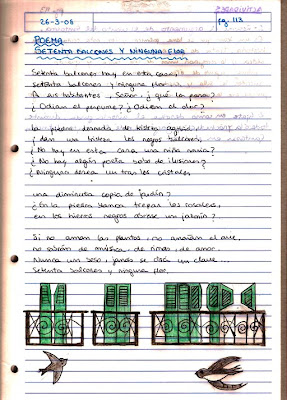 26-3-08
pg. 113
POEMA
SETENTA BALCONES Y NINGUNA FLOR
Setenta balcones hay en esta casa,
setenta balcones y ninguna flor
A sus habitantes, Señor, ¿qué les pasa?
¿Odian el perfume? ¿Odian el color?
La piedra desnuda de tristeza
¿dan una tristeza los negros balcones!
¿No hay en esta casa una niña novia?
¿No hay algún poeta bobo de ilusiones?
¿Ninguno desea ver tras los cristales
una diminuta copia de jardín?
¿En la piedra blanca trepar los rosales,
en los hierros negros abrirse un jazmín?
Si no aman las plantas, no amarán el ave,
no sabrán de música, de rimas, de amor.
Nunca un beso, jamás se oirá un clave...
Setenta balcones y ninguna flor.